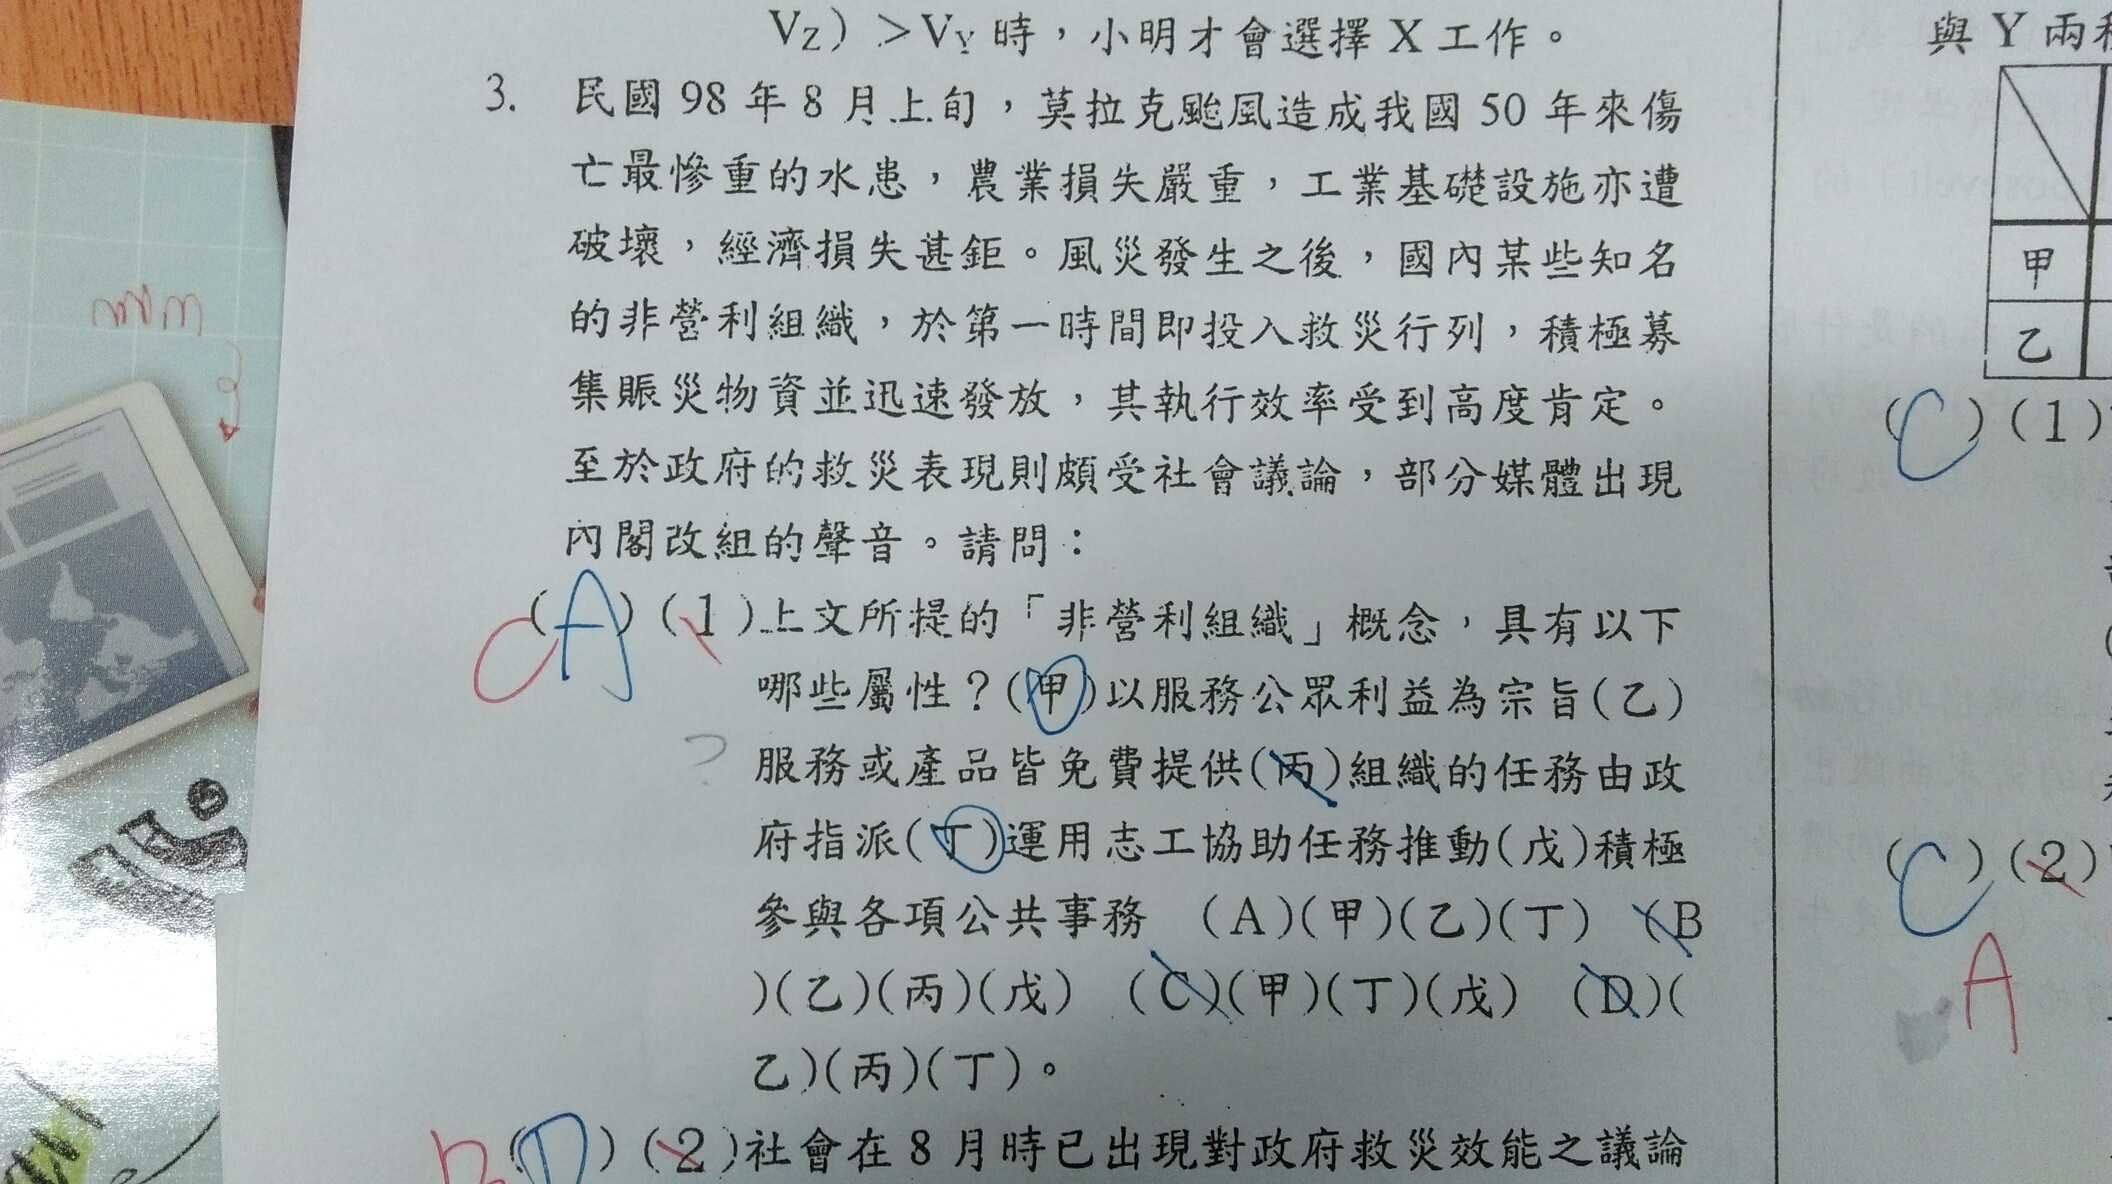 VZ）＞VY 時，小明才會選擇 X 工作。
3. 民國 98 年 8 月上旬，莫拉克颱風造成我國 50 年來傷
亡最慘重的水患，農業損失嚴重，工業基礎設施亦遭
破壞，經濟損失甚鉅。風災發生之後，國內某些知名
的非營利組織，於第一時間即投入救災行列，積極募
集賑災物資並迅速發放，其執行效率受到高度肯定。
至於政府的救災表現則頗受社會議論，部分媒體出現
內閣改組的聲音。請問：
C (A) (1)上文所提的「非營利組織」概念，具有以下
哪些屬性？(甲)以服務公眾利益為宗旨(乙)
? 服務或產品皆免費提供(丙)組織的任務由政
府指派(丁)運用志工協助任務推動(戊)積極
參與各項公共事務 (A)(甲)(乙)(丁) (B
)(乙)(丙)(戊) (C)(甲)(丁)(戊) (D)(
乙)(丙)(丁)。
(D) (2)社會在 8 月時已出現對政府救災效能之議論
與 Y 兩
甲
乙
(C) (1)
(C) (2)
A